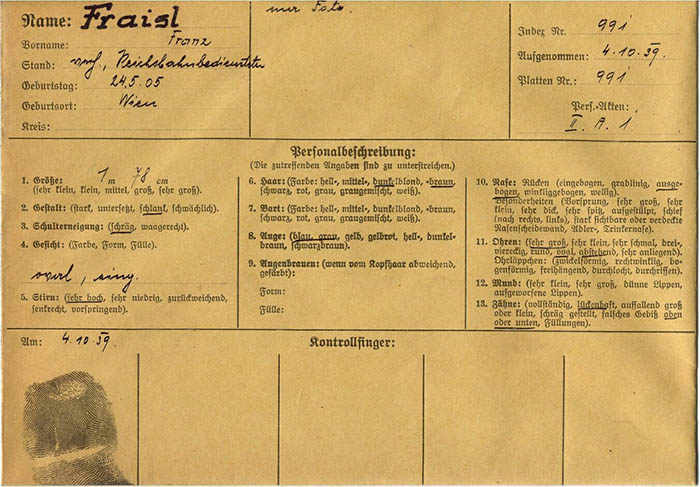 Name: Fraisl
nur Foto.
Index Nr. 991
Vorname: Franz
Aufgenommen: 4.10.39.
Stand: verh., Reichsbahnbediensteter
Platten Nr.: 991
Geburtstag: 24.5.05
Geburtsort: Wien
Pers.-Akten:
II. A. 1
Kreis:
Personalbeschreibung:
(Die zutreffenden Angaben sind zu unterstreichen.)
1. Größe: 1 m 78 cm
(sehr klein, klein, mittel, groß, sehr groß).
2. Gestalt: (stark, untersetzt, schlank, schwächlich).
3. Schulterneigung: (schräg, waagerecht).
4. Gesicht: (Farbe, Form, Fülle).
oval,
5. Stirn: (sehr hoch, sehr niedrig, zurückweichend,
senkrecht, vorspringend).
6. Haar: (Farbe: hell-, mittel-, dunkelblond, -braun,
schwarz, rot, grau, graugemischt, weiß).
7. Bart: (Farbe: hell-, mittel-, dunkelblond, -braun,
schwarz, rot, grau, graugemischt, weiß).
8. Auge: (blau, grau, gelb, gelbrot, hell-, dunkel-
braun, schwarzbraun).
9. Augenbrauen: (wenn vom Kopfhaar abweichend,
gefärbt):
Form:
Fülle:
10. Nase: Rücken (eingebogen, gradlinig, ausge-
bogen, winkliggebogen, wellig).
Besonderheiten (Vorsprung, sehr groß, sehr
klein, sehr dick, sehr spitz, aufgestülpt, schief
(nach rechts, links), stark sichtbare oder verdeckte
Nasenscheidewand, Adler-, Trinkernase).
11. Ohren: (sehr groß, sehr klein, sehr schmal, drei-,
viereckig, rund, oval, abstehend, sehr anliegend).
Ohrläppchen: (zwickelförmig, rechtwinklig, bo-
genförmig, freihängend, durchlocht, durchrissen).
12. Mund: (sehr klein, sehr groß, dünne Lippen,
aufgeworfene Lippen).
13. Zähne: (vollständig, lückenhaft, auffallend groß
oder klein, schräg gestellt, falsches Gebiß oben
oder unten, Füllungen).
Am: 4.10.39.
Kontrollfinger: